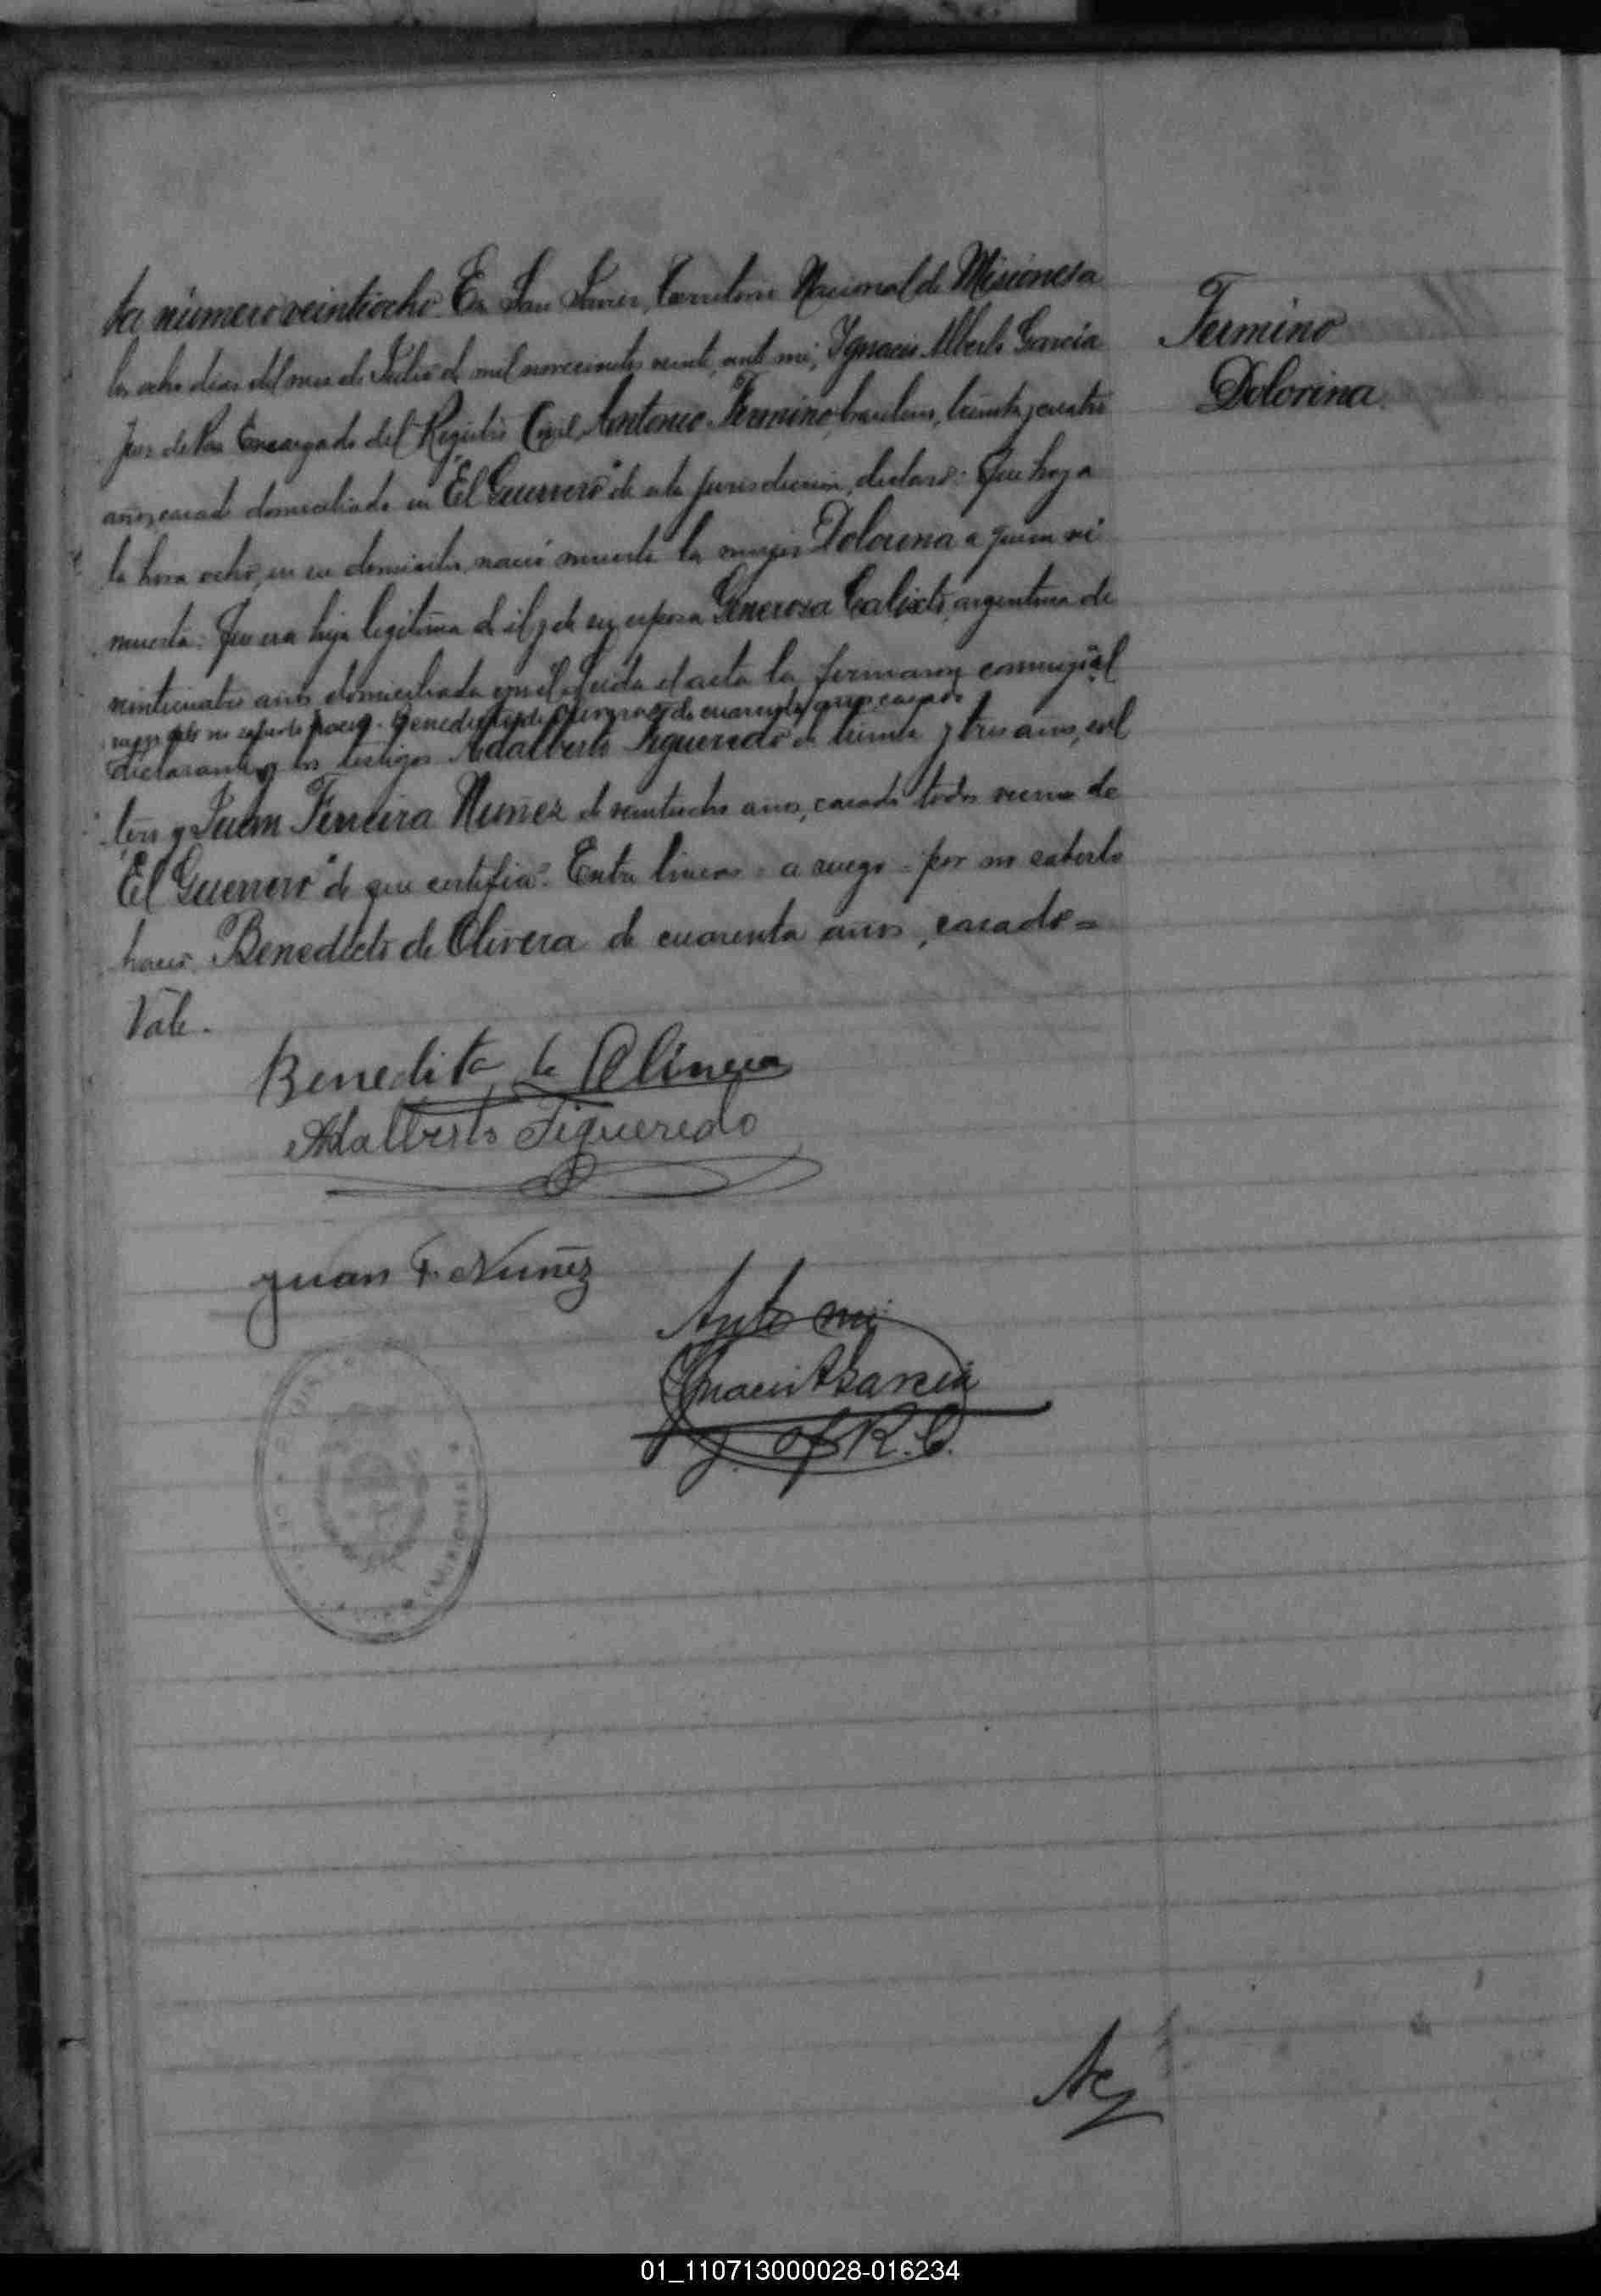 ta número veintiocho. En San Javier, Territorio Nacional de Misiones a
los ocho dias del mes de Julio de mil novecientos veinte, ante mi, Ygnacio Alberto García
Juez de Paz Encargado del Registro Civil, Antonio Fermino, brasilero, treinta y cuatro
años, casado domiciliado en "El Guerrero" de esta jurisdiccion, declaró: Que hoy a
la hora ocho, en su domicilio, nació muerta la mujer Dolorina a quien ví
muerta. Que era hija legítima de él y de su esposa Generosa Calixto, argentina de
veinticuatro años domiciliada con él. Leida el acta la firmaron conmigo, al
ruego por no saberlo hacer Benedicto de Olivera de cuarenta años, casado
declarante y los testigos Adalberto Figueredo de treinta y tres años, sol
tero y Juan Ferreira Nuñez de veintiocho años, casado todos vecinos de
"El Guerrero" de que certifico. Entre lineas = a ruego = por no saberlo
hacer Benedicto de Olivera de cuarenta años, casado =
Vale.
Fermino
Dolorina
Benedito de Olivera
Adalberto Figueredo
Juan F. Nuñez
Ante mi
Ygnacio A Garcia
J. of R. C.
MISIONES
Ac
01_110713000028-016234